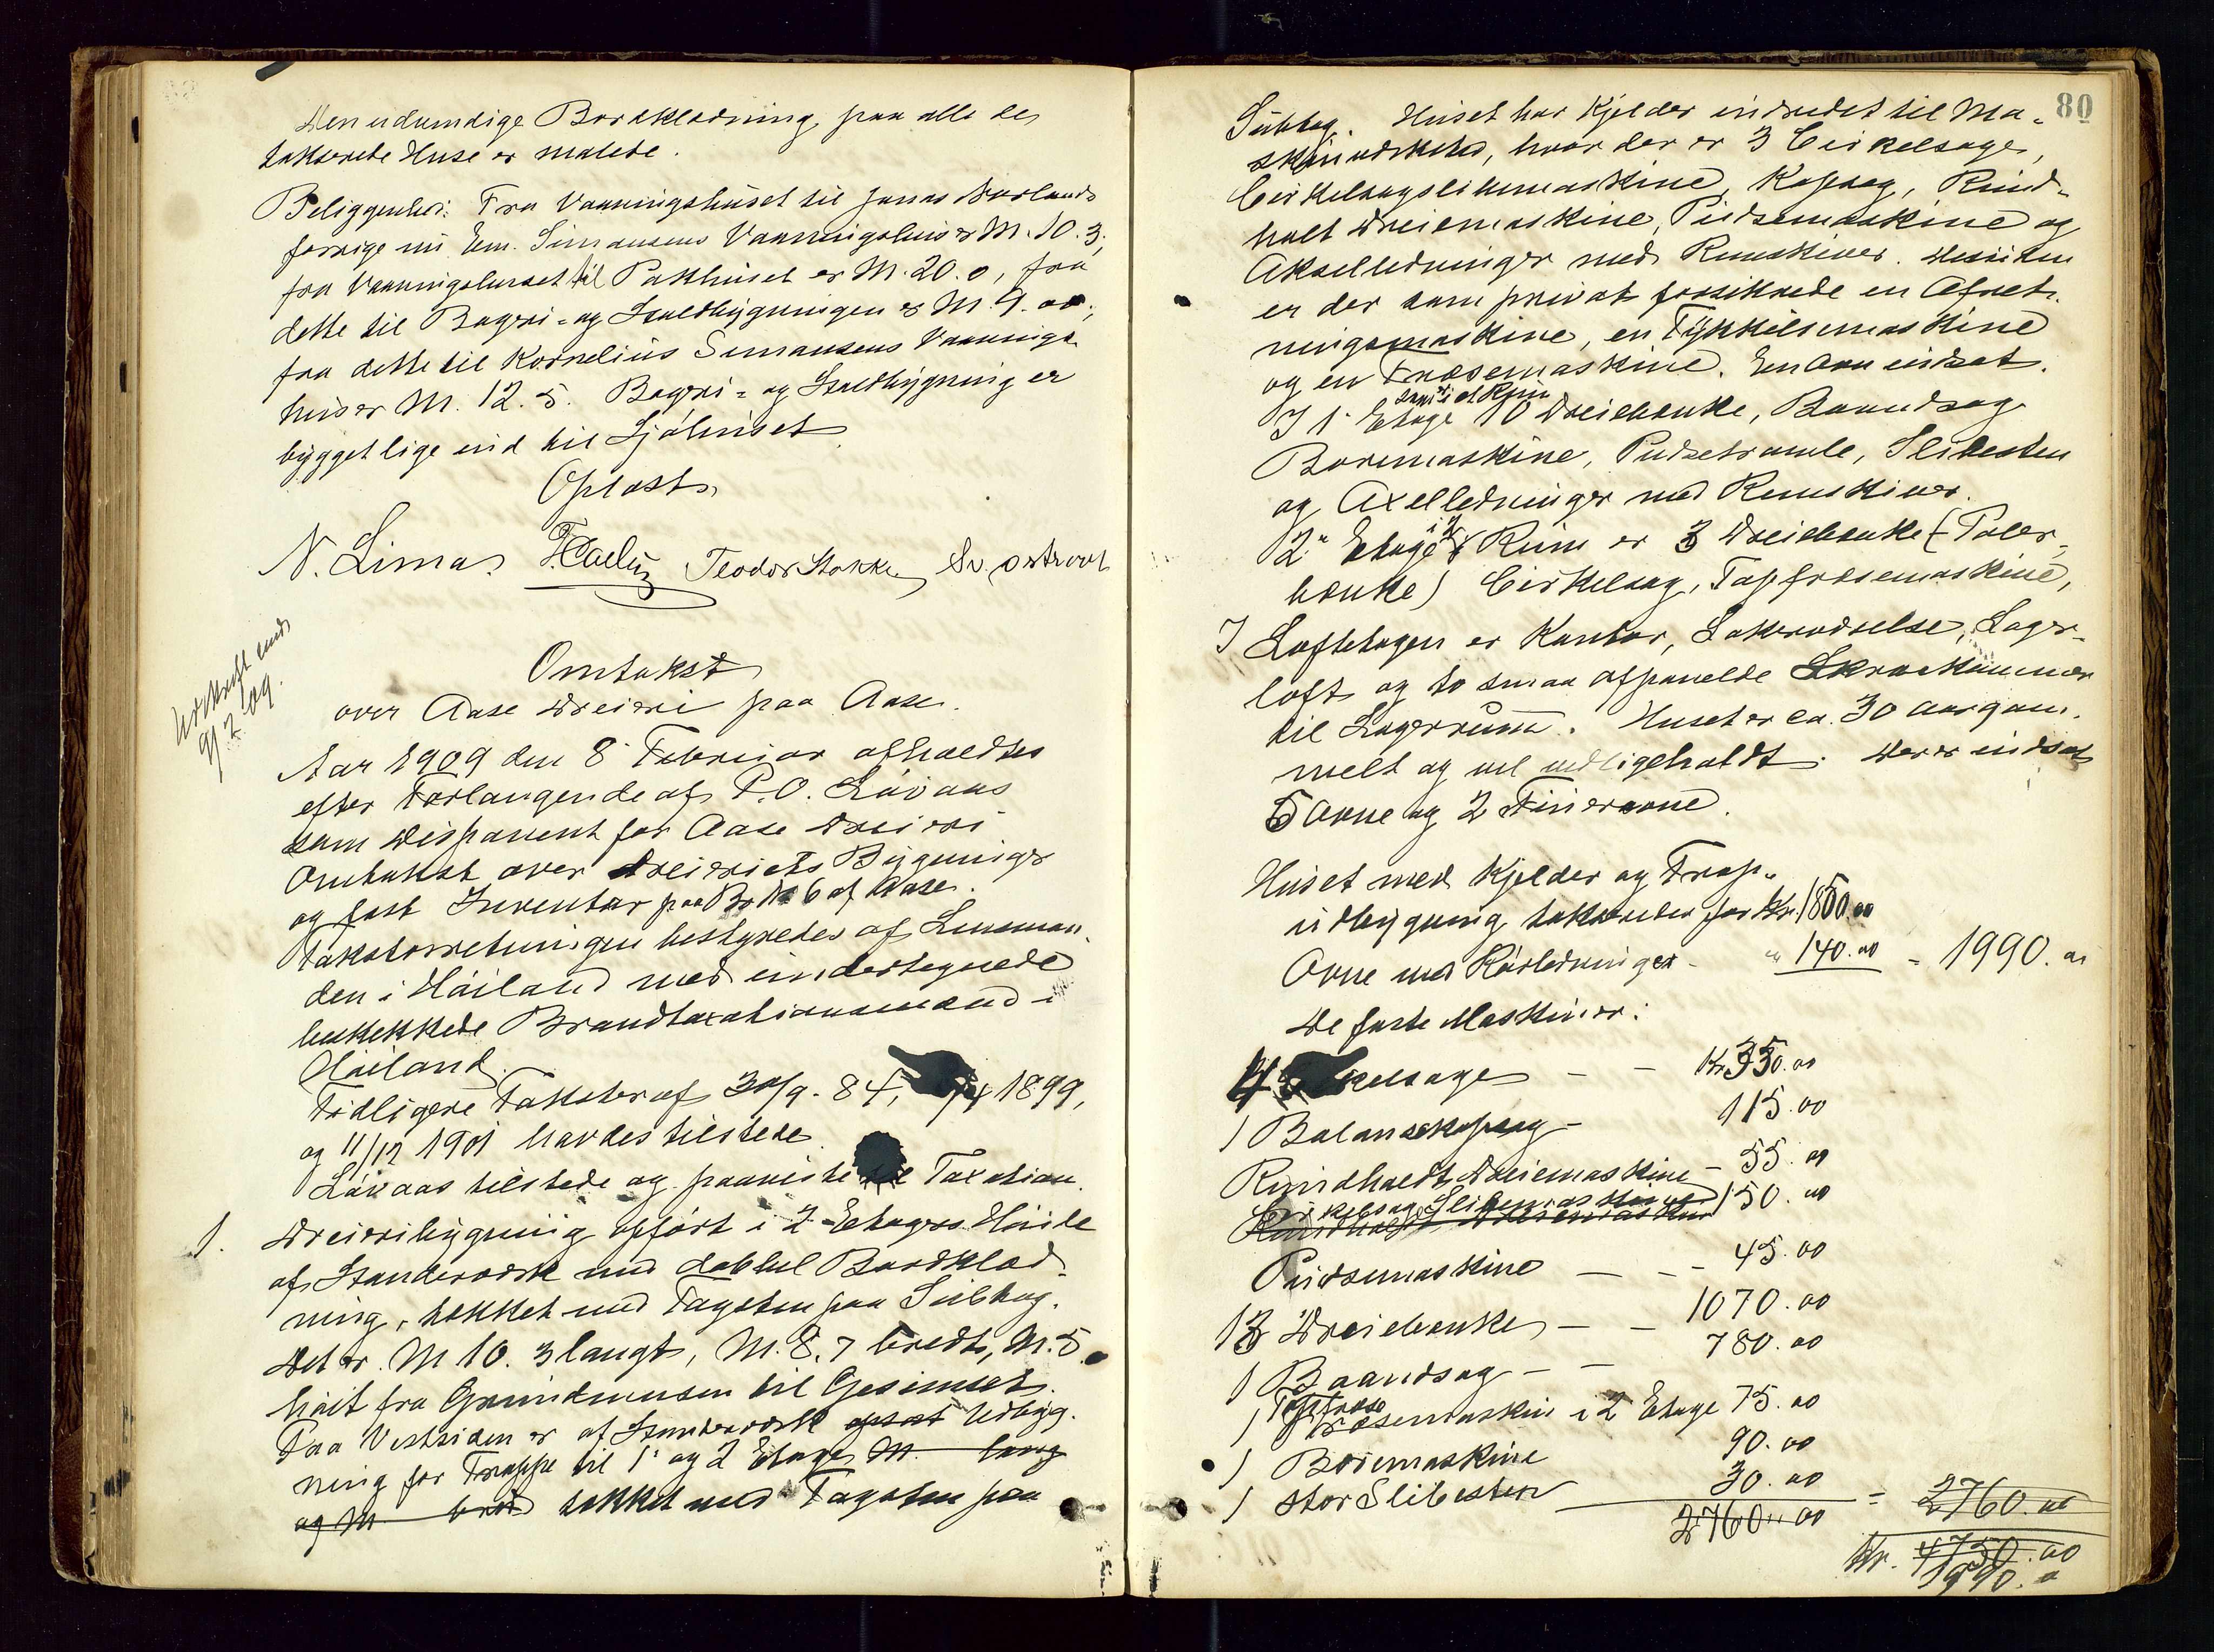 Den udvendige Bordklædning paa alle de
takserede Huse er malede.
Beliggenhed: Fra Vaaningshuset til Jonas Norlands
forrige nu Em. Simonsens Vaaningshus er M. 10.3,
fra Vaaningshuset til Pakhuset er M. 20.0, fra
dette til Bageri- og Staldbygningen er M. 9.00,
fra dette til Kornelius Simonsens Vaanings-
hus er M. 12.5. Bageri- og Staldbygning er
bygget lige ind til Sjøhuset
Oplæst.
N. Lima. Teodor Stokke
Udskrift med.
9/2 09.
Omtakst
over Aase Dreieri paa Aase.
Aar 1909 den 8 Februar afholdtes
efter Forlangende af P. O. Løvaas
som Disponent for Aase Dreieri
Omtakst over Dreieriets Bygninger
og fast Inventar paa Br No 6 af Aase.
Takstforretningen bestyredes af Lensman-
den i Høiland med undertegnede
beskikkede Brandtaxationsmænd i
Høiland.
Tidligere Takster af 30/9. 84, 1899,
og 11/12 1901 havdes tilstede.
Løvaas tilstede og paaviste til Taxation.
1. Dreieribygning opført i 2 Etagers Høide
af Standerværk med dobbel Bordklæd-
ning, tækket med Tagsten paa Subtag.
Det er M 10.3 langt, M. 8.7 bredt, M. 5.
høit fra Grundmuren til Gesimset.
Paa Vestsiden er af Standerværk opsat Udbyg-
ning for Trappe til 1' og 2 Etage M. lang
og M bred tækket med Tagsten paa
80
Subtag. Huset har Kjelder indredet til Ma-
skinværksted, hvor der er 3 Cirkelsage,
Cirkelsagslibemaskine, Kapsag, Rund-
holt Dreiemaskine, Pudsemaskine og
Akselledninger med Remskiver. Desuden
er der som privat forsikrede en Afret-
ningsmaskine, en Tykkelsemaskine
og en Fræsemaskine. En Ovn indsat.
som er i et Rum
I 1' Etage 10 Dreiebænke, Baandsag
Boremaskine, Pudsetromle, Slibesten
og Axelledninger med Remskiver.
2' Etage i 2 Rum er 3 Dreiebænke (Poler-
bænke) Cirkelsag, Tapfræsemaskine,
I Loftetagen er Kontor, Lakværelse, Lager-
loft og to smaa afpanelde Skraakammer
til Lagerrum. Huset er ca. 30 Aar gam-
melt og vel vedligeholdt. Der er indsat
5 Ovne og 2 Finerovne.
Huset med Kjelder og Trap-
udbygning takseredes for Kr. 1850.00
Ovne med Rørledninger - " 140.00 = 1990.00
De faste Maskiner:
4 Cirkelsage - - Kr 350.00
1 Balansekapsag - 115.00
Rundholdt Dreiemaskine - 55.00
Cirkelsag Slibemaskine 150.00
Rundholdt Dreiemaskine
Pudsemaskine - - - 45.00
13 Dreiebænke - - 1070.00
1 Baandsag - - 780.00
Tapfræse
1 Fræsemaskin i 2 Etage 75.00
1 Boremaskine 90.00
1 stor Slibesten 30.00
2760.00 = 2760.00
Kr. 4750.00
1990.00